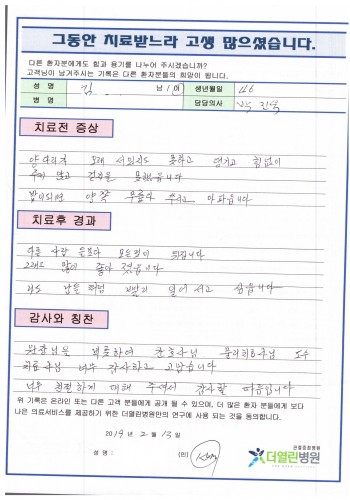 그동안 치료받느라 고생 많으셨습니다.
다른 환자분에게도 힘과 용기를 나누어 주시겠습니까?
고객님이 남겨주시는 기록은 다른 환자분들의 희망이 됩니다.
성 명 김 남 / 여 생년월일 46
병 명 담당의사 박진
치료전 증상
양다리가 오래 서있지도 못하고 땡기고 힘없이
많고 걷지를 못했습니다
밤이되면 양쪽 무릎이 쑤시고 아파습니다
치료후 경과
모든것이
그래도 많이 좋아 졌습니다
남들처럼 빨리 싶습니다
감사와 칭찬
원장님을 비롯하여 간호사님 물리치료사님 모두
치료 너무 감사하고 고맙습니다
너무 친절하게 대해 주셔서 감사할 따름입니다
위 기록은 온라인 또는 다른 고객 분들에게 공개 될 수 있으며, 더 많은 환자 분들에게 보다
나은 의료서비스를 제공하기 위한 더열린병원만의 연구에 사용 되는 것을 동의합니다.
2019 년 2 월 13 일
성명 : (인)
관절중점병원
더열린병원